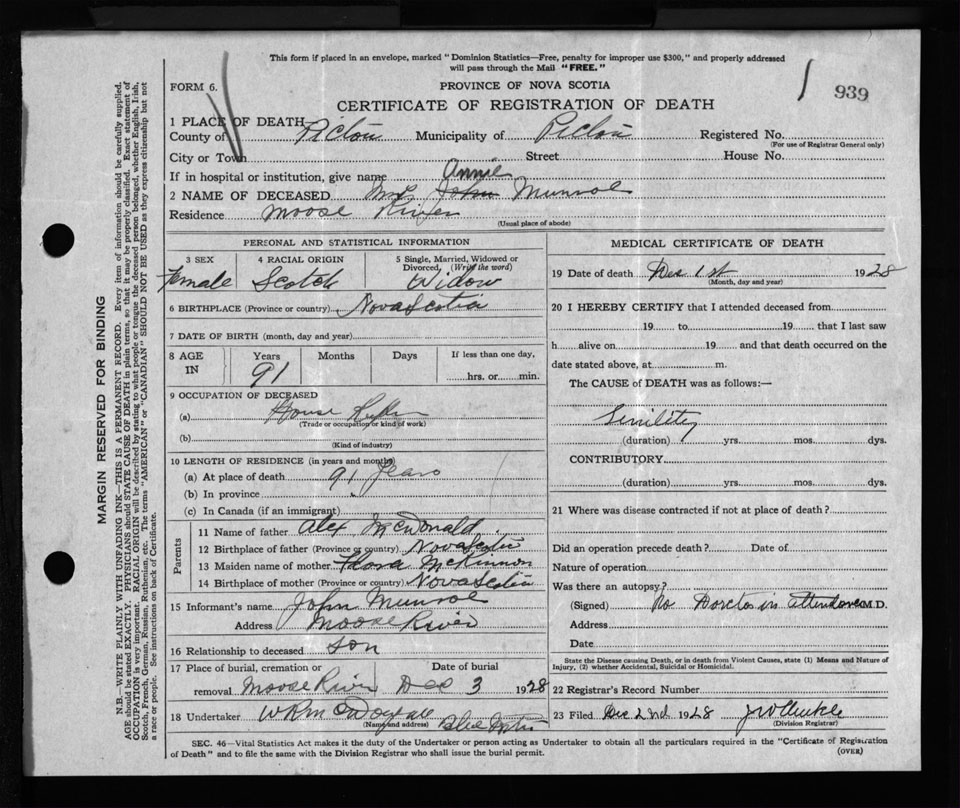 This form if placed in an envelope, marked "Dominion Statistics—Free, penalty for improper use $300," and properly addressed
will pass through the Mail "FREE."
FORM 6.
PROVINCE OF NOVA SCOTIA
939
CERTIFICATE OF REGISTRATION OF DEATH
1 PLACE OF DEATH
County of Pictou Municipality of Pictou Registered No.
(For use of Registrar General only)
City or Town Street House No.
If in hospital or institution, give name
Annie
2 NAME OF DECEASED Mrs John Munroe
Residence Moose River
(Usual place of abode)
PERSONAL AND STATISTICAL INFORMATION
3 SEX 4 RACIAL ORIGIN 5 Single, Married, Widowed or
Divorced, (Write the word)
Female Scotch Widow
6 BIRTHPLACE (Province or country) Nova Scotia
7 DATE OF BIRTH (month, day and year)
8 AGE IN Years Months Days If less than one day,
91 hrs. or min.
9 OCCUPATION OF DECEASED
(a) House
(Trade or occupation or kind of work)
(b)
(Kind of industry)
10 LENGTH OF RESIDENCE (in years and months)
(a) At place of death 91 Years
(b) In province
(c) In Canada (if an immigrant)
Parents
11 Name of father Alex McDonald
12 Birthplace of father (Province or country) Nova Scotia
13 Maiden name of mother Flora McKinnon
14 Birthplace of mother (Province or country) Nova Scotia
15 Informant's name John Munroe
Address Moose River
16 Relationship to deceased son
17 Place of burial, cremation or Date of burial
removal Moose River Dec 3 1928
18 Undertaker
(Name and address)
MEDICAL CERTIFICATE OF DEATH
19 Date of death Dec 1st 1928
(Month, day and year)
20 I HEREBY CERTIFY that I attended deceased from
19 to 19 that I last saw
h alive on 19 and that death occurred on the
date stated above, at m.
The CAUSE of DEATH was as follows:—
Senility
(duration) yrs. mos. dys.
CONTRIBUTORY
(duration) yrs. mos. dys.
21 Where was disease contracted if not at place of death?
Did an operation precede death? Date of
Nature of operation
Was there an autopsy?
(Signed) No Doctor in attendance M.D.
Address
Date
State the Disease causing Death, or in death from Violent Causes, state (1) Means and Nature of
Injury, (2) whether Accidental, Suicidal or Homicidal.
22 Registrar's Record Number
23 Filed Dec 2nd 1928
(Division Registrar)
SEC. 46—Vital Statistics Act makes it the duty of the Undertaker or person acting as Undertaker to obtain all the particulars required in the "Certificate of Registration
of Death" and to file the same with the Division Registrar who shall issue the burial permit.
(OVER)
MARGIN RESERVED FOR BINDING
N.B.—WRITE PLAINLY WITH UNFADING INK—THIS IS A PERMANENT RECORD. Every item of information should be carefully supplied.
AGE should be stated EXACTLY. PHYSICIANS should STATE CAUSE OF DEATH in plain terms, so that it may be properly classified. Exact statement of
OCCUPATION is very important. RACIAL ORIGIN will be described by stating to what people or tongue the deceased person belonged, whether English, Irish,
Scotch, French, German, Russian, Ruthenian, etc. The terms "AMERICAN" or "CANADIAN" SHOULD NOT BE USED as they express citizenship but not
a race or people. See instructions on back of Certificate.